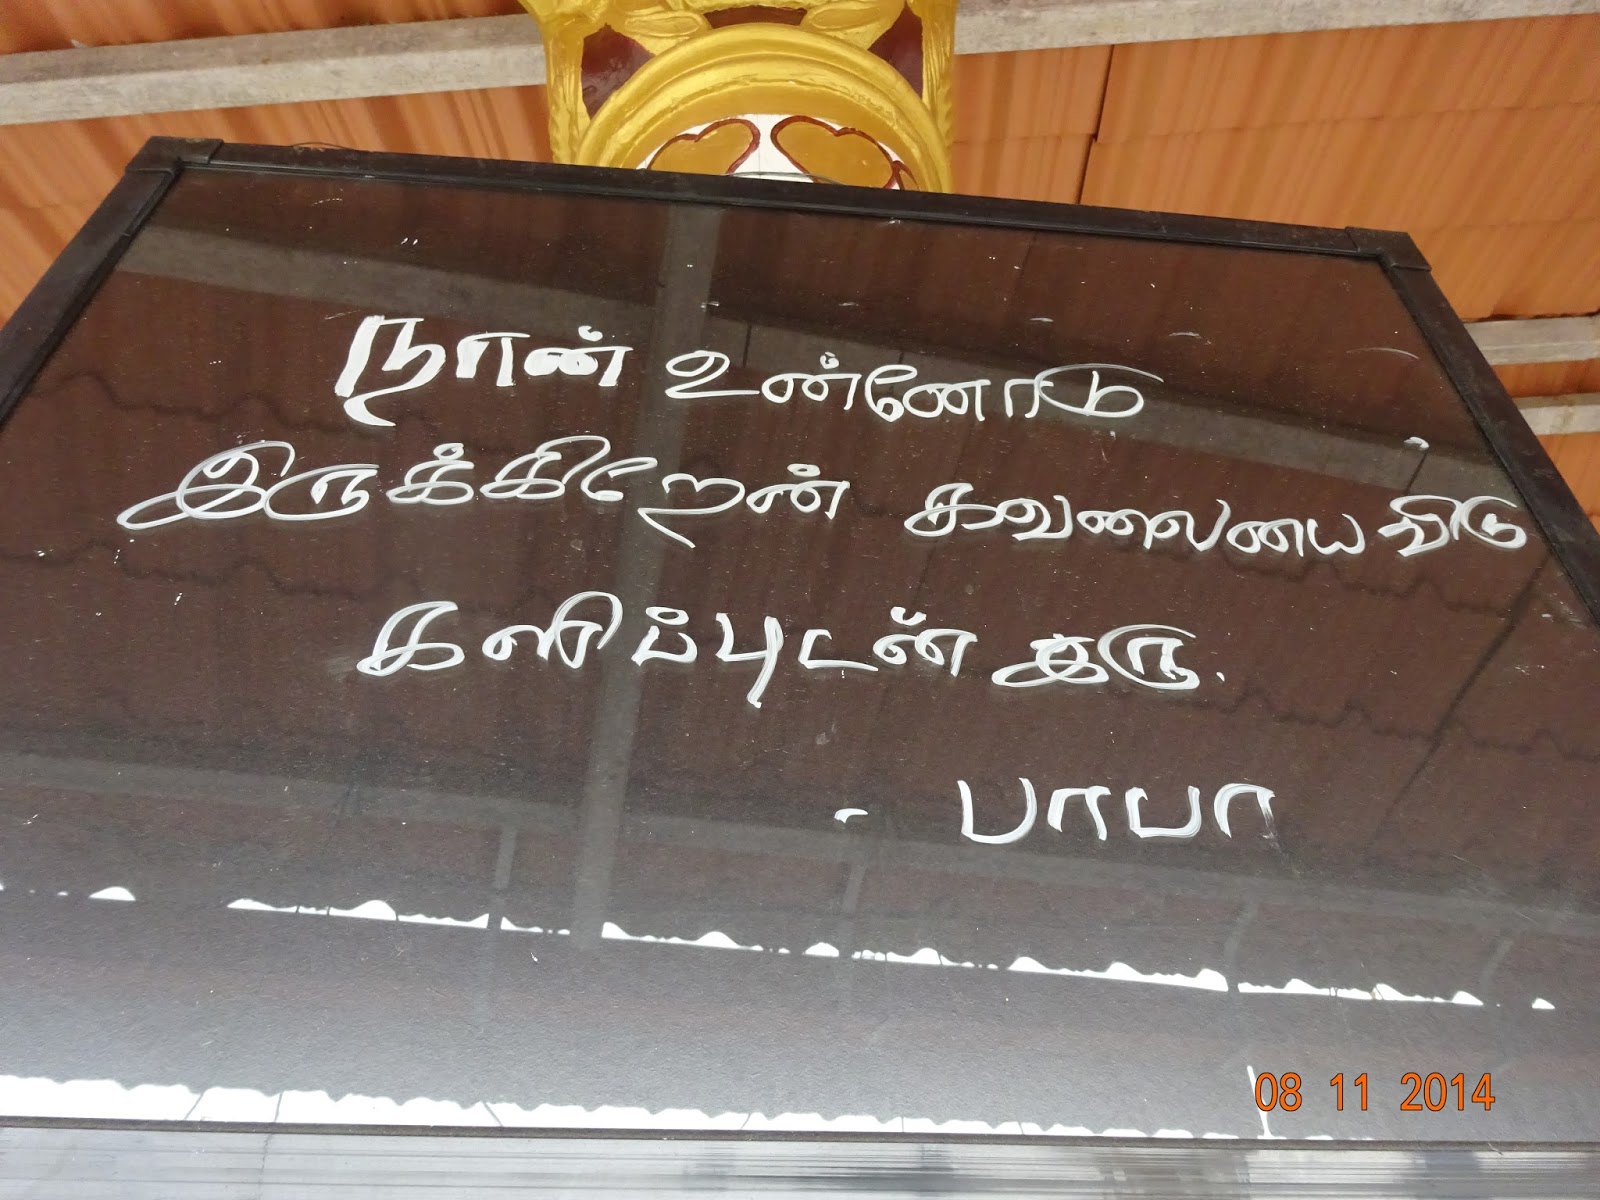 நான் உன்னோடு
இருக்கிறேன் கவலையை விடு
களிப்புடன் இரு.
- பாபா
08 11 2014